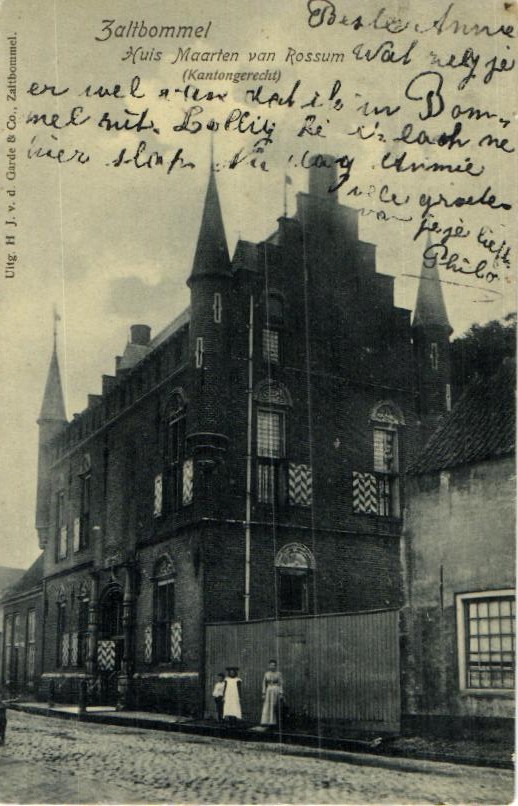 Zaltbommel
Huis Maarten van Rossum
(Kantongerecht)
Uitg. H. J. v. d. Garde & Co., Zaltbommel.
Beste Annie
Wat zeg je
er wel van dat ik in Bom-
mel zit. Lollig hè
hier slaap dag Annie
vele groeten
van je je liefh.
Philo.